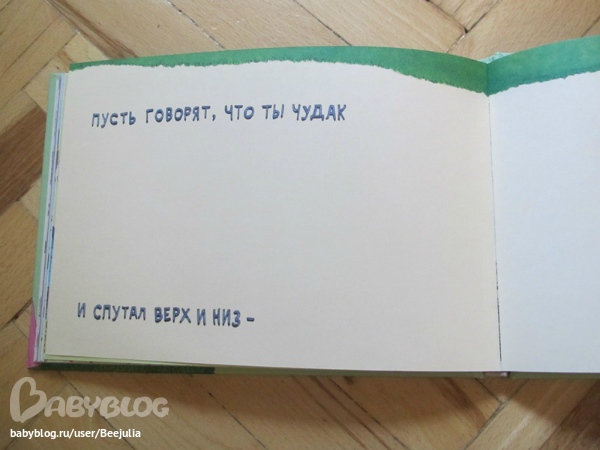 ПУСТЬ ГОВОРЯТ, ЧТО ТЫ ЧУДАК
И СПУТАЛ ВЕРХ И НИЗ –
BABYBLOG
babyblog.ru/user/Beejulia